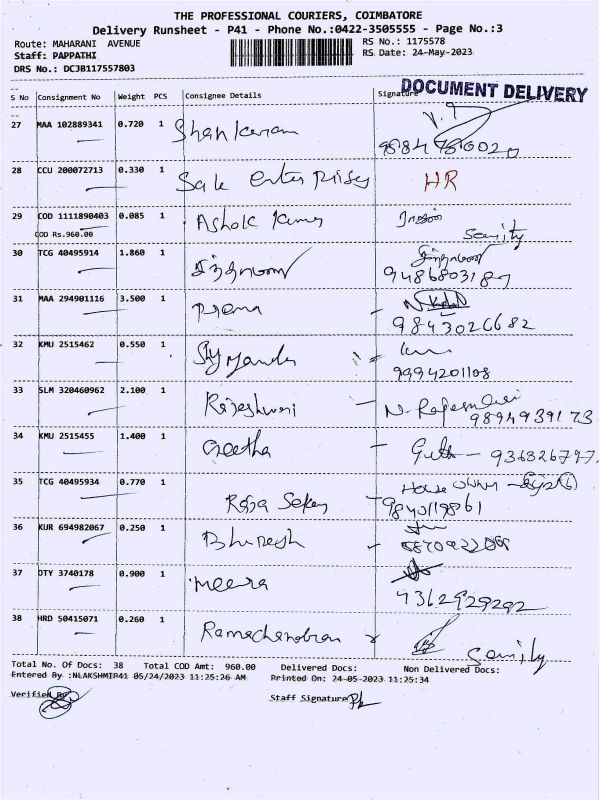 THE PROFESSIONAL COURIERS, COIMBATORE
Delivery Runsheet - P41 - Phone No.:0422-3505555 - Page No.:3
Route: MAHARANI AVENUE
RS No.: 1175578
Staff: PAPPATHI
RS Date: 24-May-2023
DRS No.: DCJB117557803
DOCUMENT DELIVERY
S No Consignment No Weight PCS Consignee Details Signature
27 MAA 102889341 0.720 1
28 CCU 200072713 0.330 1 Sale Enterprises HR
29 COD 1111890403 0.085 1 Ashok Kumar
COD Rs.960.00 Security
30 TCG 40495914 1.860 1
9486803187
31 MAA 294901116 3.500 1 Prema
9843026682
32 KMU 2515462 0.550 1
9994201108
33 SLM 320460962 2.100 1 Rajeshwari N. Rajeshwari
9894939173
34 KMU 2515455 1.400 1 Geetha - Geetha - 936826797
35 TCG 40495934 0.770 1 House owner
Raja Sekar 9840119861
36 KUR 694982067 0.250 1 Bhuvnesh
37 DTY 3740178 0.900 1 Meera
38 HRD 50415071 0.260 1 Ramachandran
Security
Total No. Of Docs: 38 Total COD Amt: 960.00 Delivered Docs: Non Delivered Docs:
Entered By :NLAKSHMIP41 05/24/2023 11:25:26 AM Printed On: 24-05-2023 11:25:34
Verified By Staff Signature